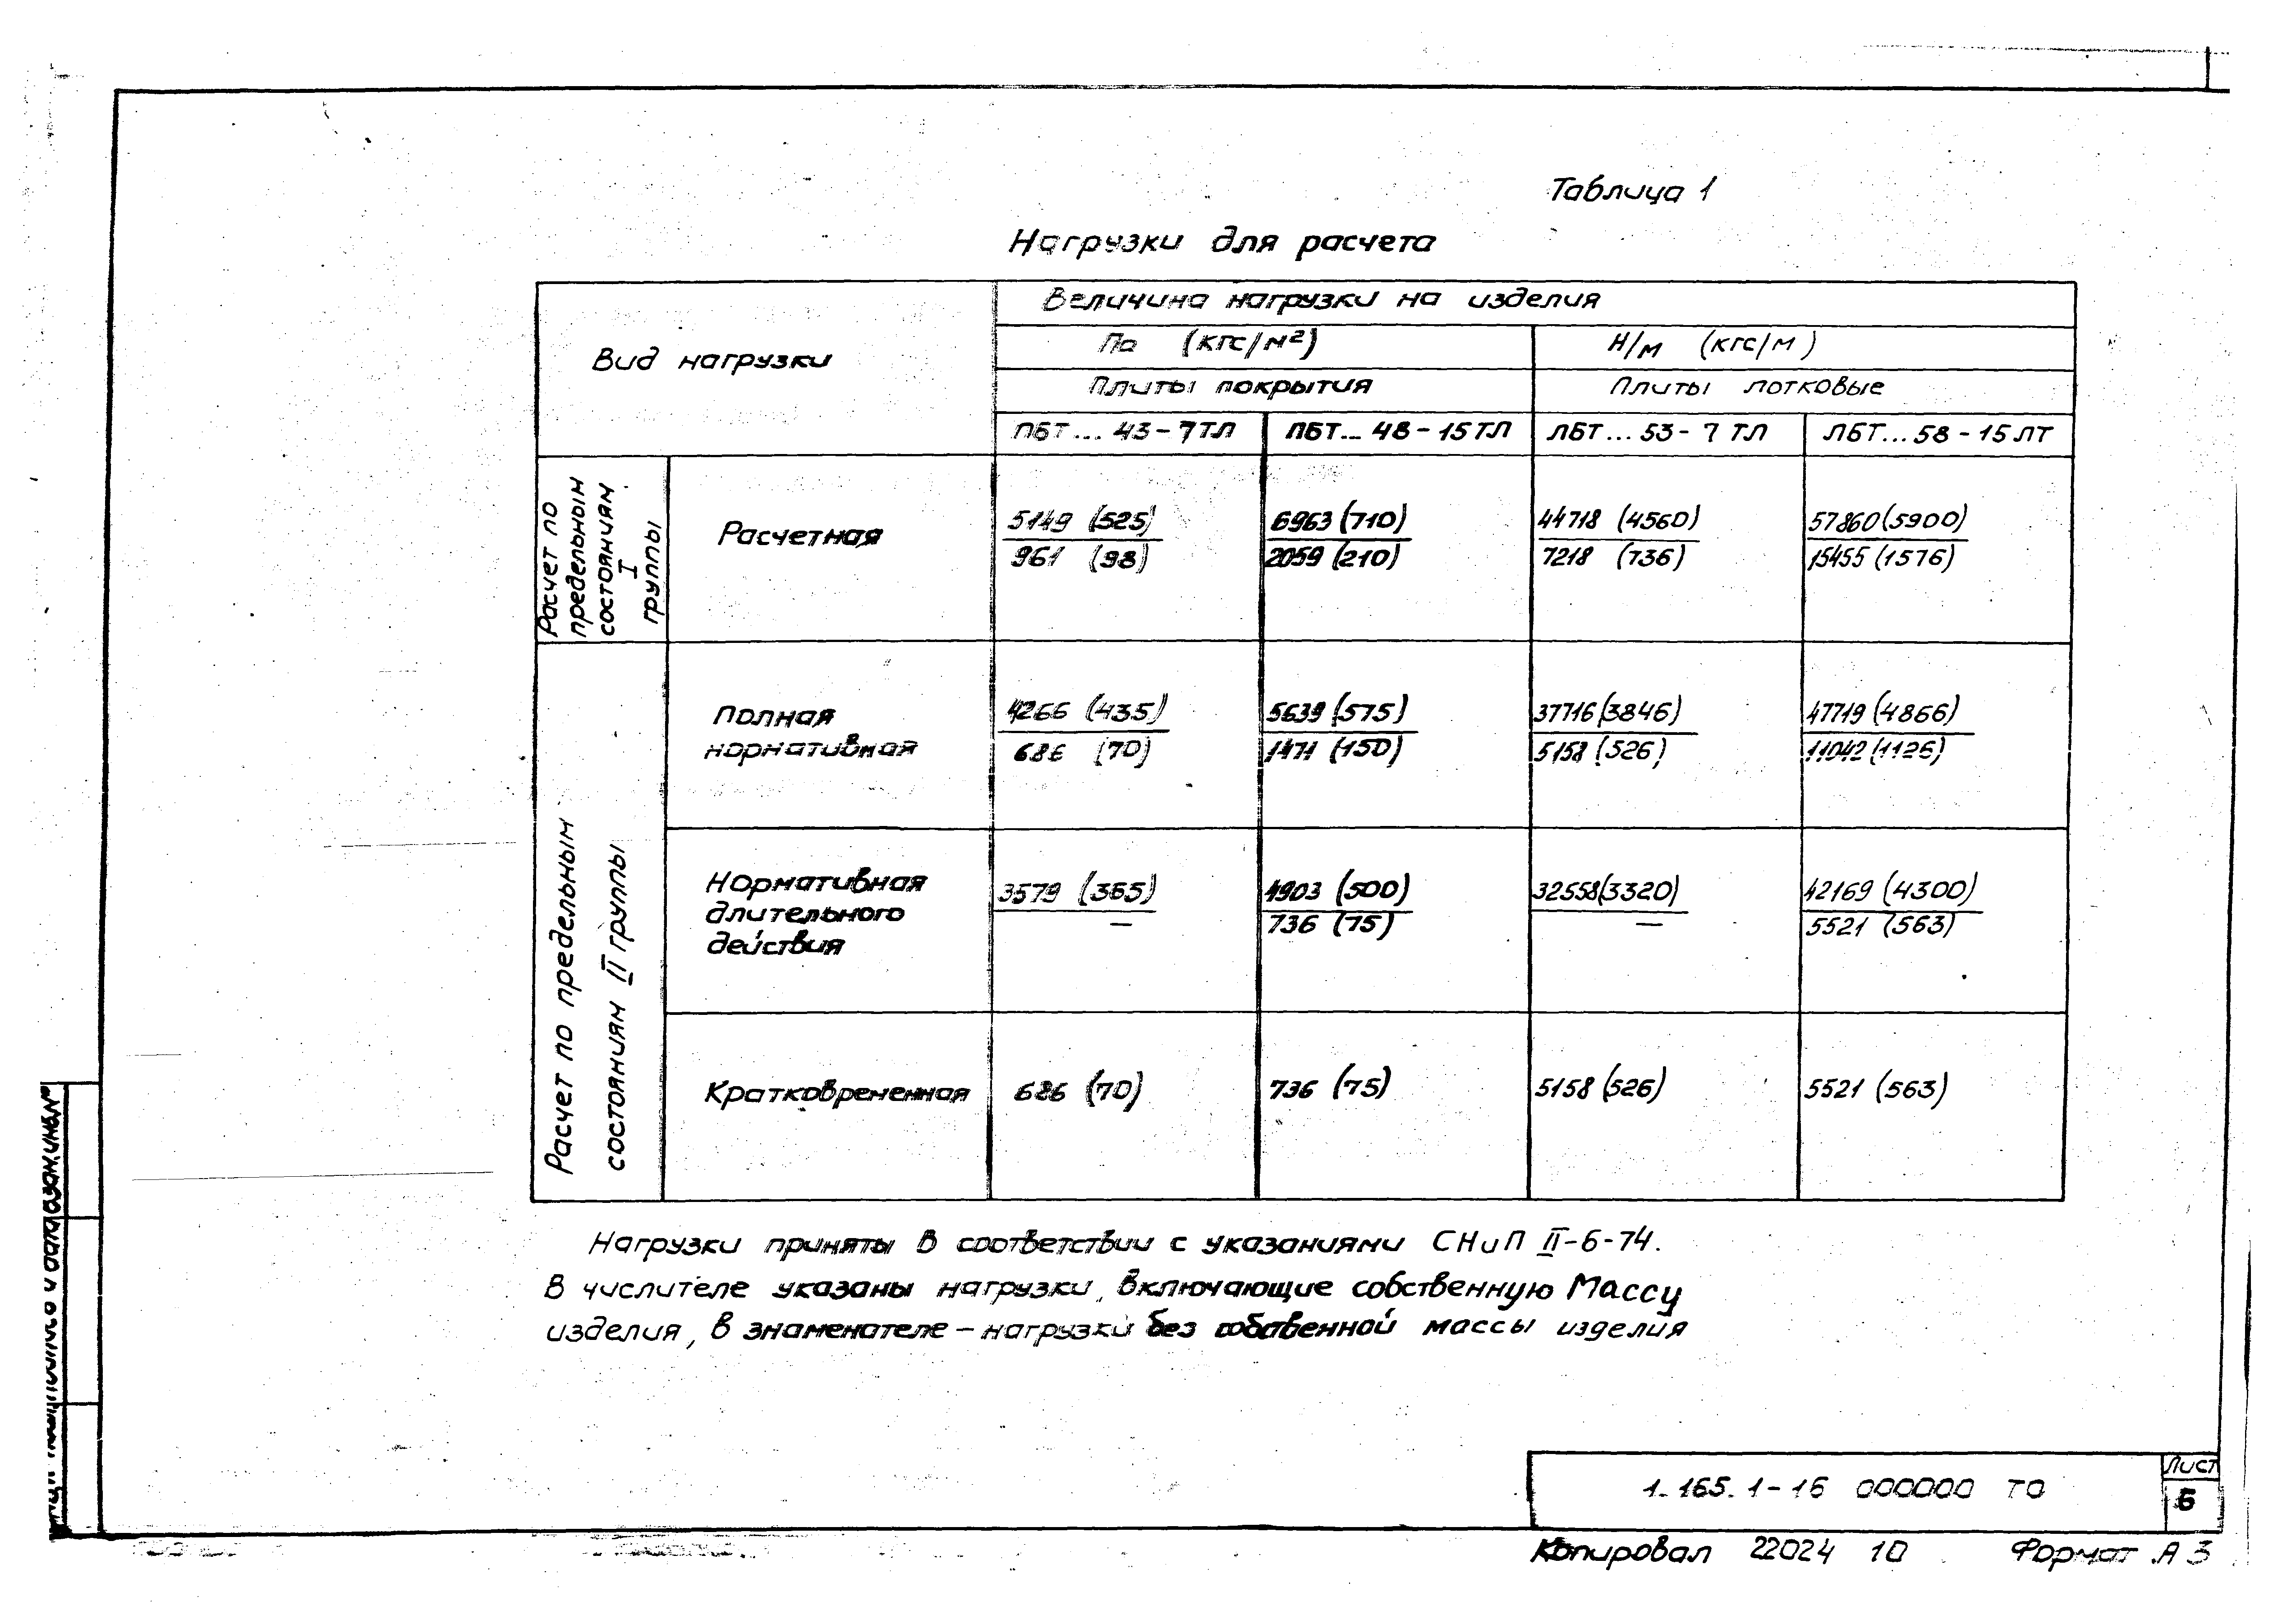 Таблица 1
Нагрузки для расчета
Вид нагрузки
Величина нагрузки на изделия
Па (кгс/м²)
Н/м (кгс/м)
Плиты покрытия
Плиты лотковые
ПБТ... 43-7ТЛ
ПБТ... 48-15ТЛ
ЛБТ... 53-7 ТЛ
ЛБТ... 58-15 ЛТ
Расчет по
предельным
состояниям
I
группы
Расчетная
5149 (525)
961 (98)
6963 (710)
2059 (210)
44718 (4560)
7218 (736)
57860 (5900)
15455 (1576)
Расчет по предельным
состояниям II группы
Полная
нормативная
4266 (435)
686 (70)
5639 (575)
1471 (150)
37716 (3846)
5158 (526)
47719 (4866)
11042 (1126)
Нормативная
длительного
действия
3579 (365)
—
4903 (500)
736 (75)
32558 (3320)
—
42169 (4300)
5521 (563)
Кратковременная
686 (70)
736 (75)
5158 (526)
5521 (563)
Нагрузки приняты в соответствии с указаниями СНиП II-6-74.
В числителе указаны нагрузки, включающие собственную массу
изделия, в знаменателе – нагрузки без собственной массы изделия
1.165.1-16 000000 ТО
Лист
Копировал 22024 10 Формат А3